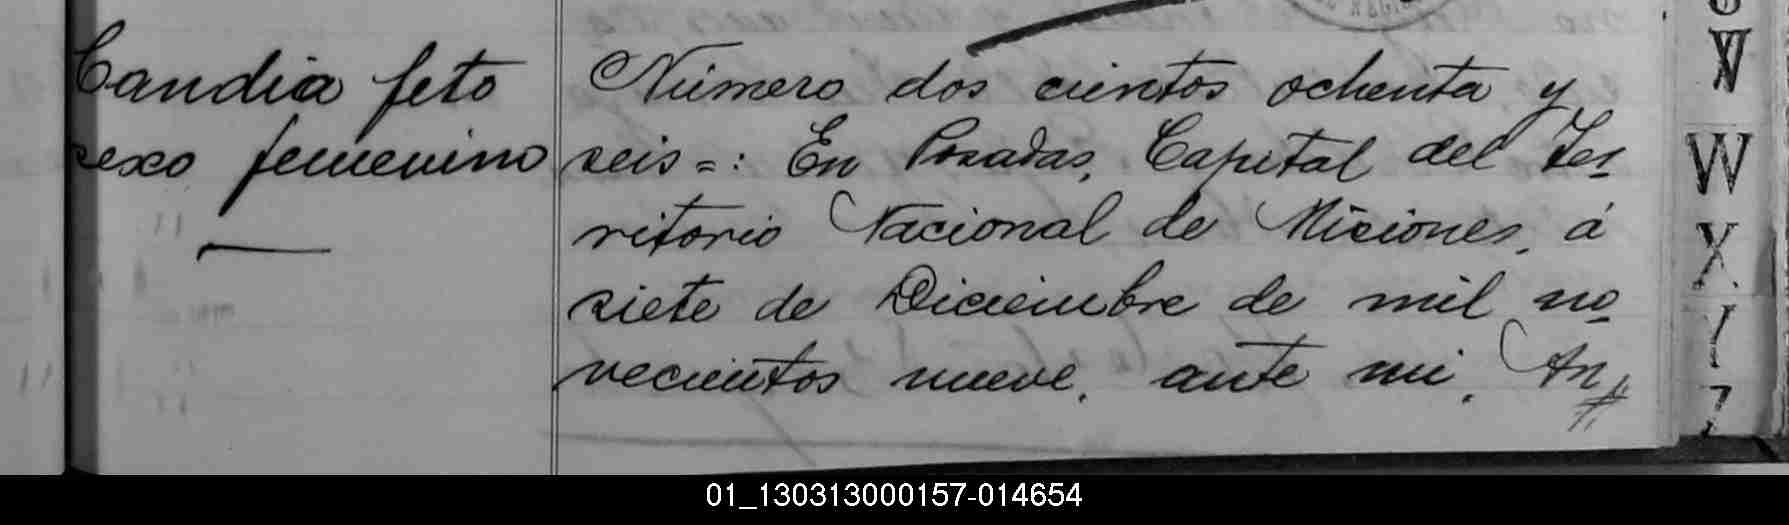 Candia feto
sexo femenino
Número dos cientos ochenta y
seis=: En Posadas, Capital del Ter
ritorio Nacional de Misiones, á
siete de Diciembre de mil no
vecientos nueve, ante mi, An
V
W
X
Y
Z
01_130313000157-014654